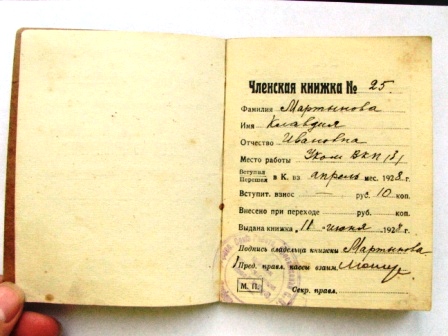 Членская книжка № 25.
Фамилия Мартынова
Имя Клавдия
Отчество Ивановна
Место работы Уком ВКП(б)
Вступил
Перешел в К. вз апрель мес. 1928 г.
Вступит. взнос — руб. 10 коп.
Внесено при переходе руб. коп.
Выдана книжка „18 июня 1928 г.
Подпись владельца книжки Мартынова
Пред. правл. кассы взаим.
М. П. Секр. правл.